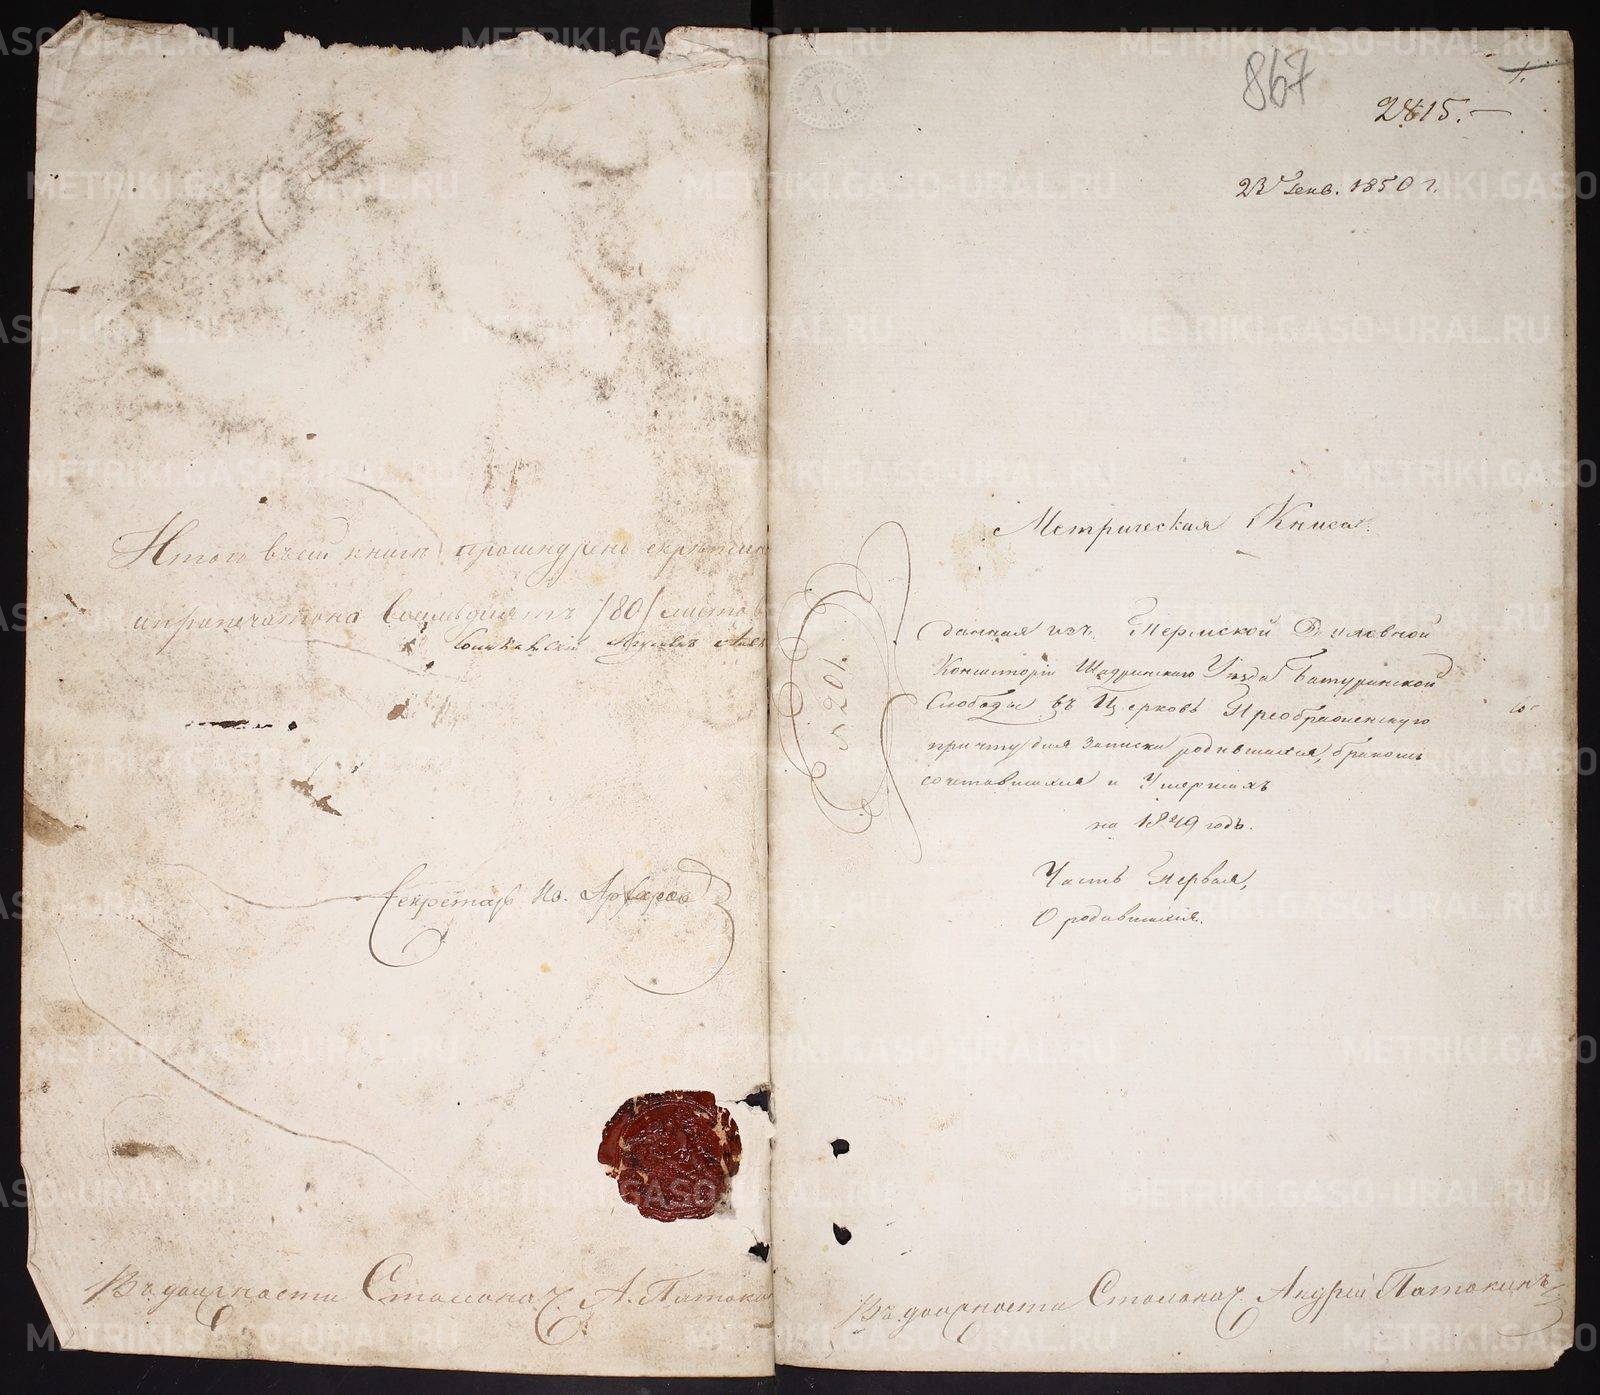 Итого въ сей книге прошнурено скреплено
и пропечатано восемьдесятъ /80/ листовъ
Секретарь Ив.
Въ должности Столонач. А. Патокин
867
1.
2815.—
23 Генв. 1850 г.
Метрическая Книга.
данная изъ Пермской Духовной
Консисторіи Шадринскаго Уезда Батуринской
Слободы въ Церковь Преображенскую
причту для записки родившихся, бракомъ
сочетавшихся и Умершихъ
на 1849 годъ.
Часть Первая,
О родившихся.
№ 201.
Въ должности Столонач. Андрей Патокинъ
METRIKI.GASO-URAL.RU